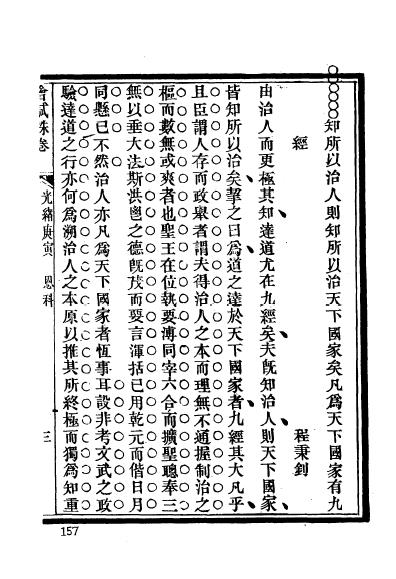 知所以治人則知所以治天下國家矣凡爲天下國家有九
經　程秉釗
由治人而更極其知達道尤在九經矣夫旣知治人則天下國家
皆知所以治矣挈之曰爲道之達於天下國家者九經其大凡乎
且臣謂人存而政舉者謂夫得治人之本而理無不通握制治之
樞而數無或爽者也聖王在位執要溥同宇六合而擴聖聰奉三
無以垂大法斯洪鬯之德旣茂而要言渾括已用乾元而偕日月
同懸已不然治人亦凡爲天下國家者恆事耳設非考文武之政
驗達道之行亦何爲溯治人之本原以推其所終極而獨爲知重
會試硃卷　光緒庚寅　恩科　三
157